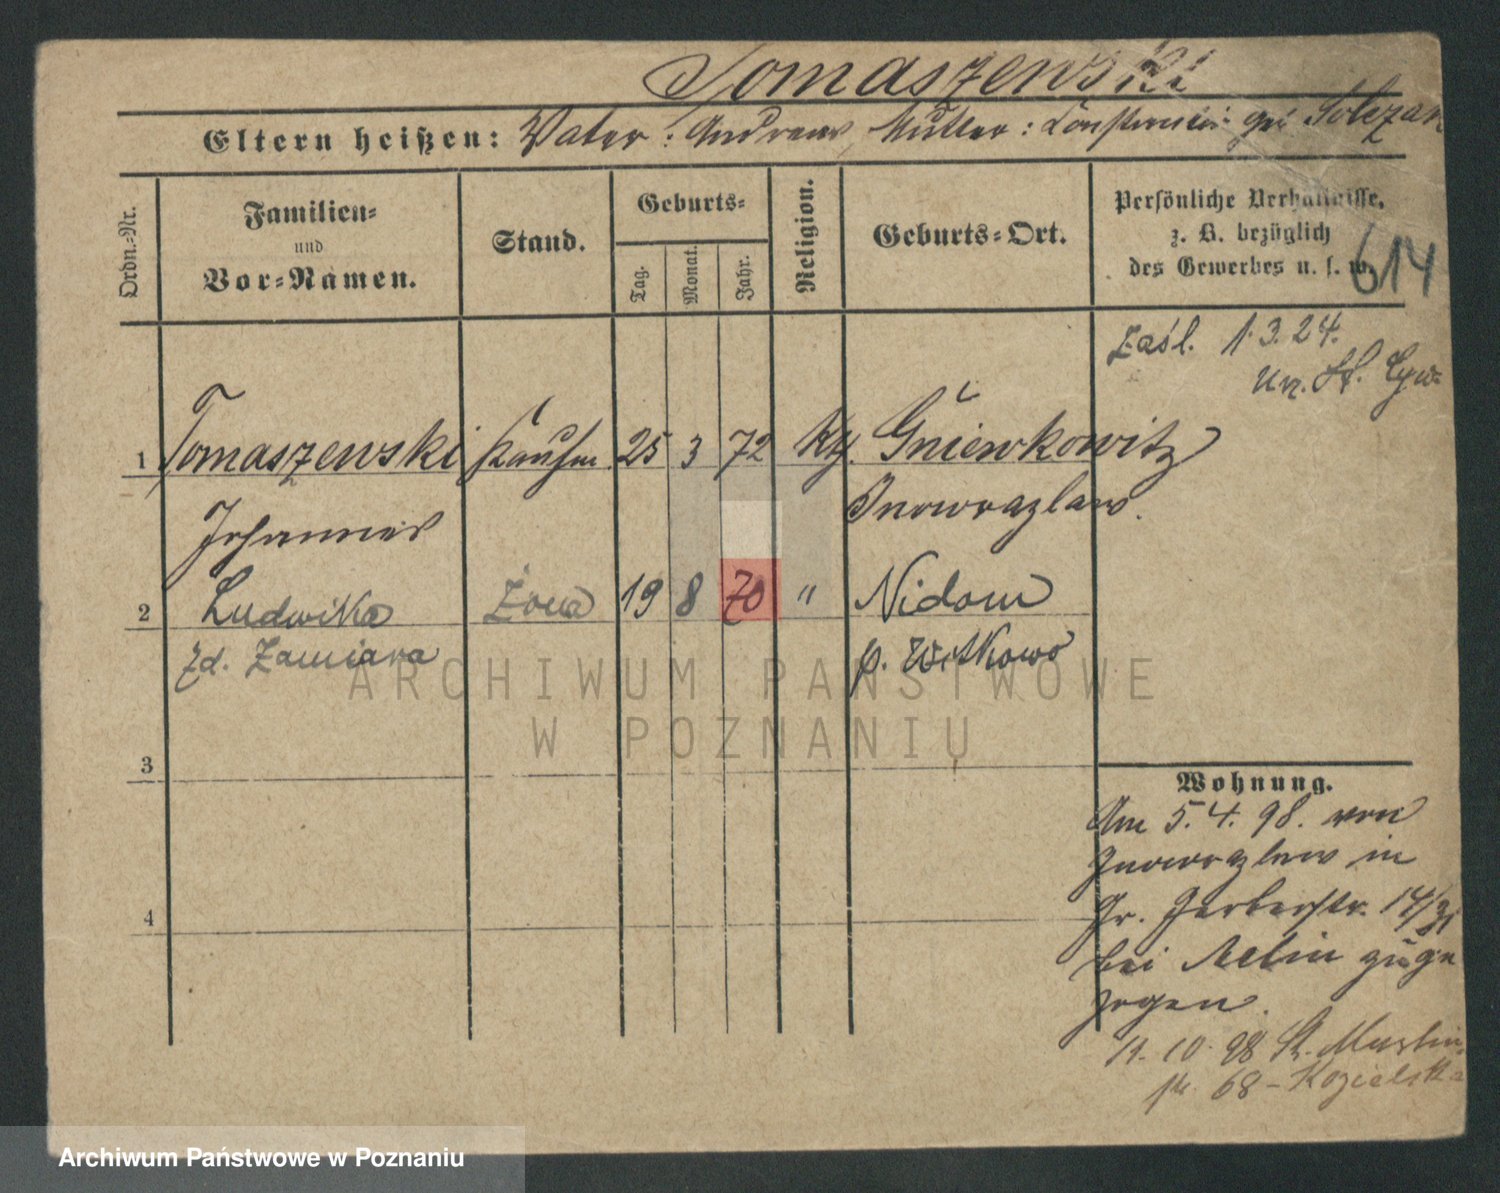 Tomaszewski
Eltern heißen: Vater: Andreas, Mutter: Constancia geb
Ordn.-Nr.
Familien-
und
Vor-Namen.
Stand.
Geburts-
Tag.
Monat.
Jahr.
Religion.
Geburts-Ort.
Persönliche Verhältnisse,
z. B. bezüglich
des Gewerbes u. s. w.
614
zaśl. 1.3.24.
1 Tomaszewski Kaufm 25 3 72 Kth. Gniewkowitz
Johannes Inowrazlaw.
2 Ludwika Żona 19 8 70 " Nidom
zd. Zamiara p. Witkowo
3
4
Wohnung.
Am 5. 4. 98. von
Inowrazlaw in
Gr. Gerberstr. 14/
bei zuge
zogen.
11. 10. 98 St. Martin
68 - Kozielska
ARCHIWUM PAŃSTWOWE
W POZNANIU
Archiwum Państwowe w Poznaniu